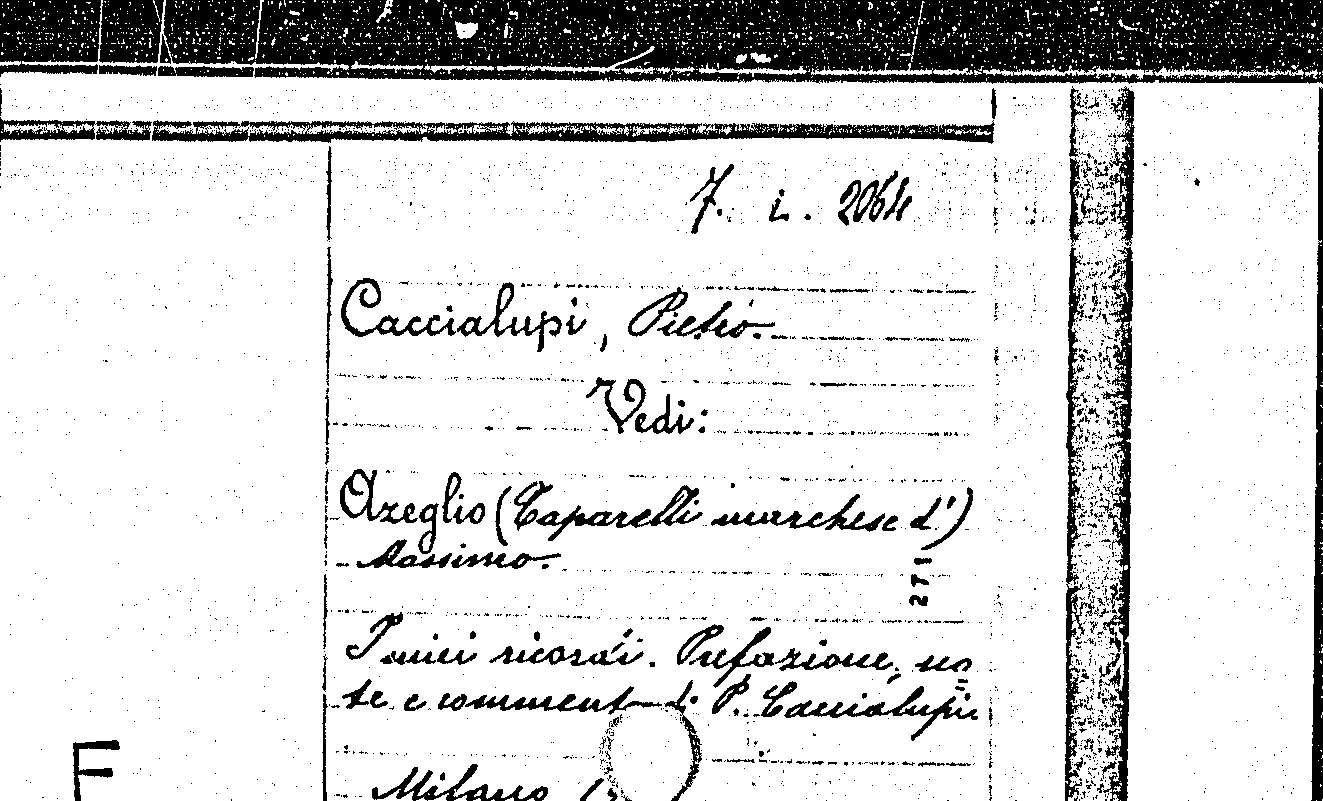 7. i. 2064
Caccialupi, Pietro.
Vedi:
Azeglio (Taparelli marchese d')
Massimo.
271
I miei ricordi. Prefazione, no=
te e comment di P. Caccialupi
F
Milano